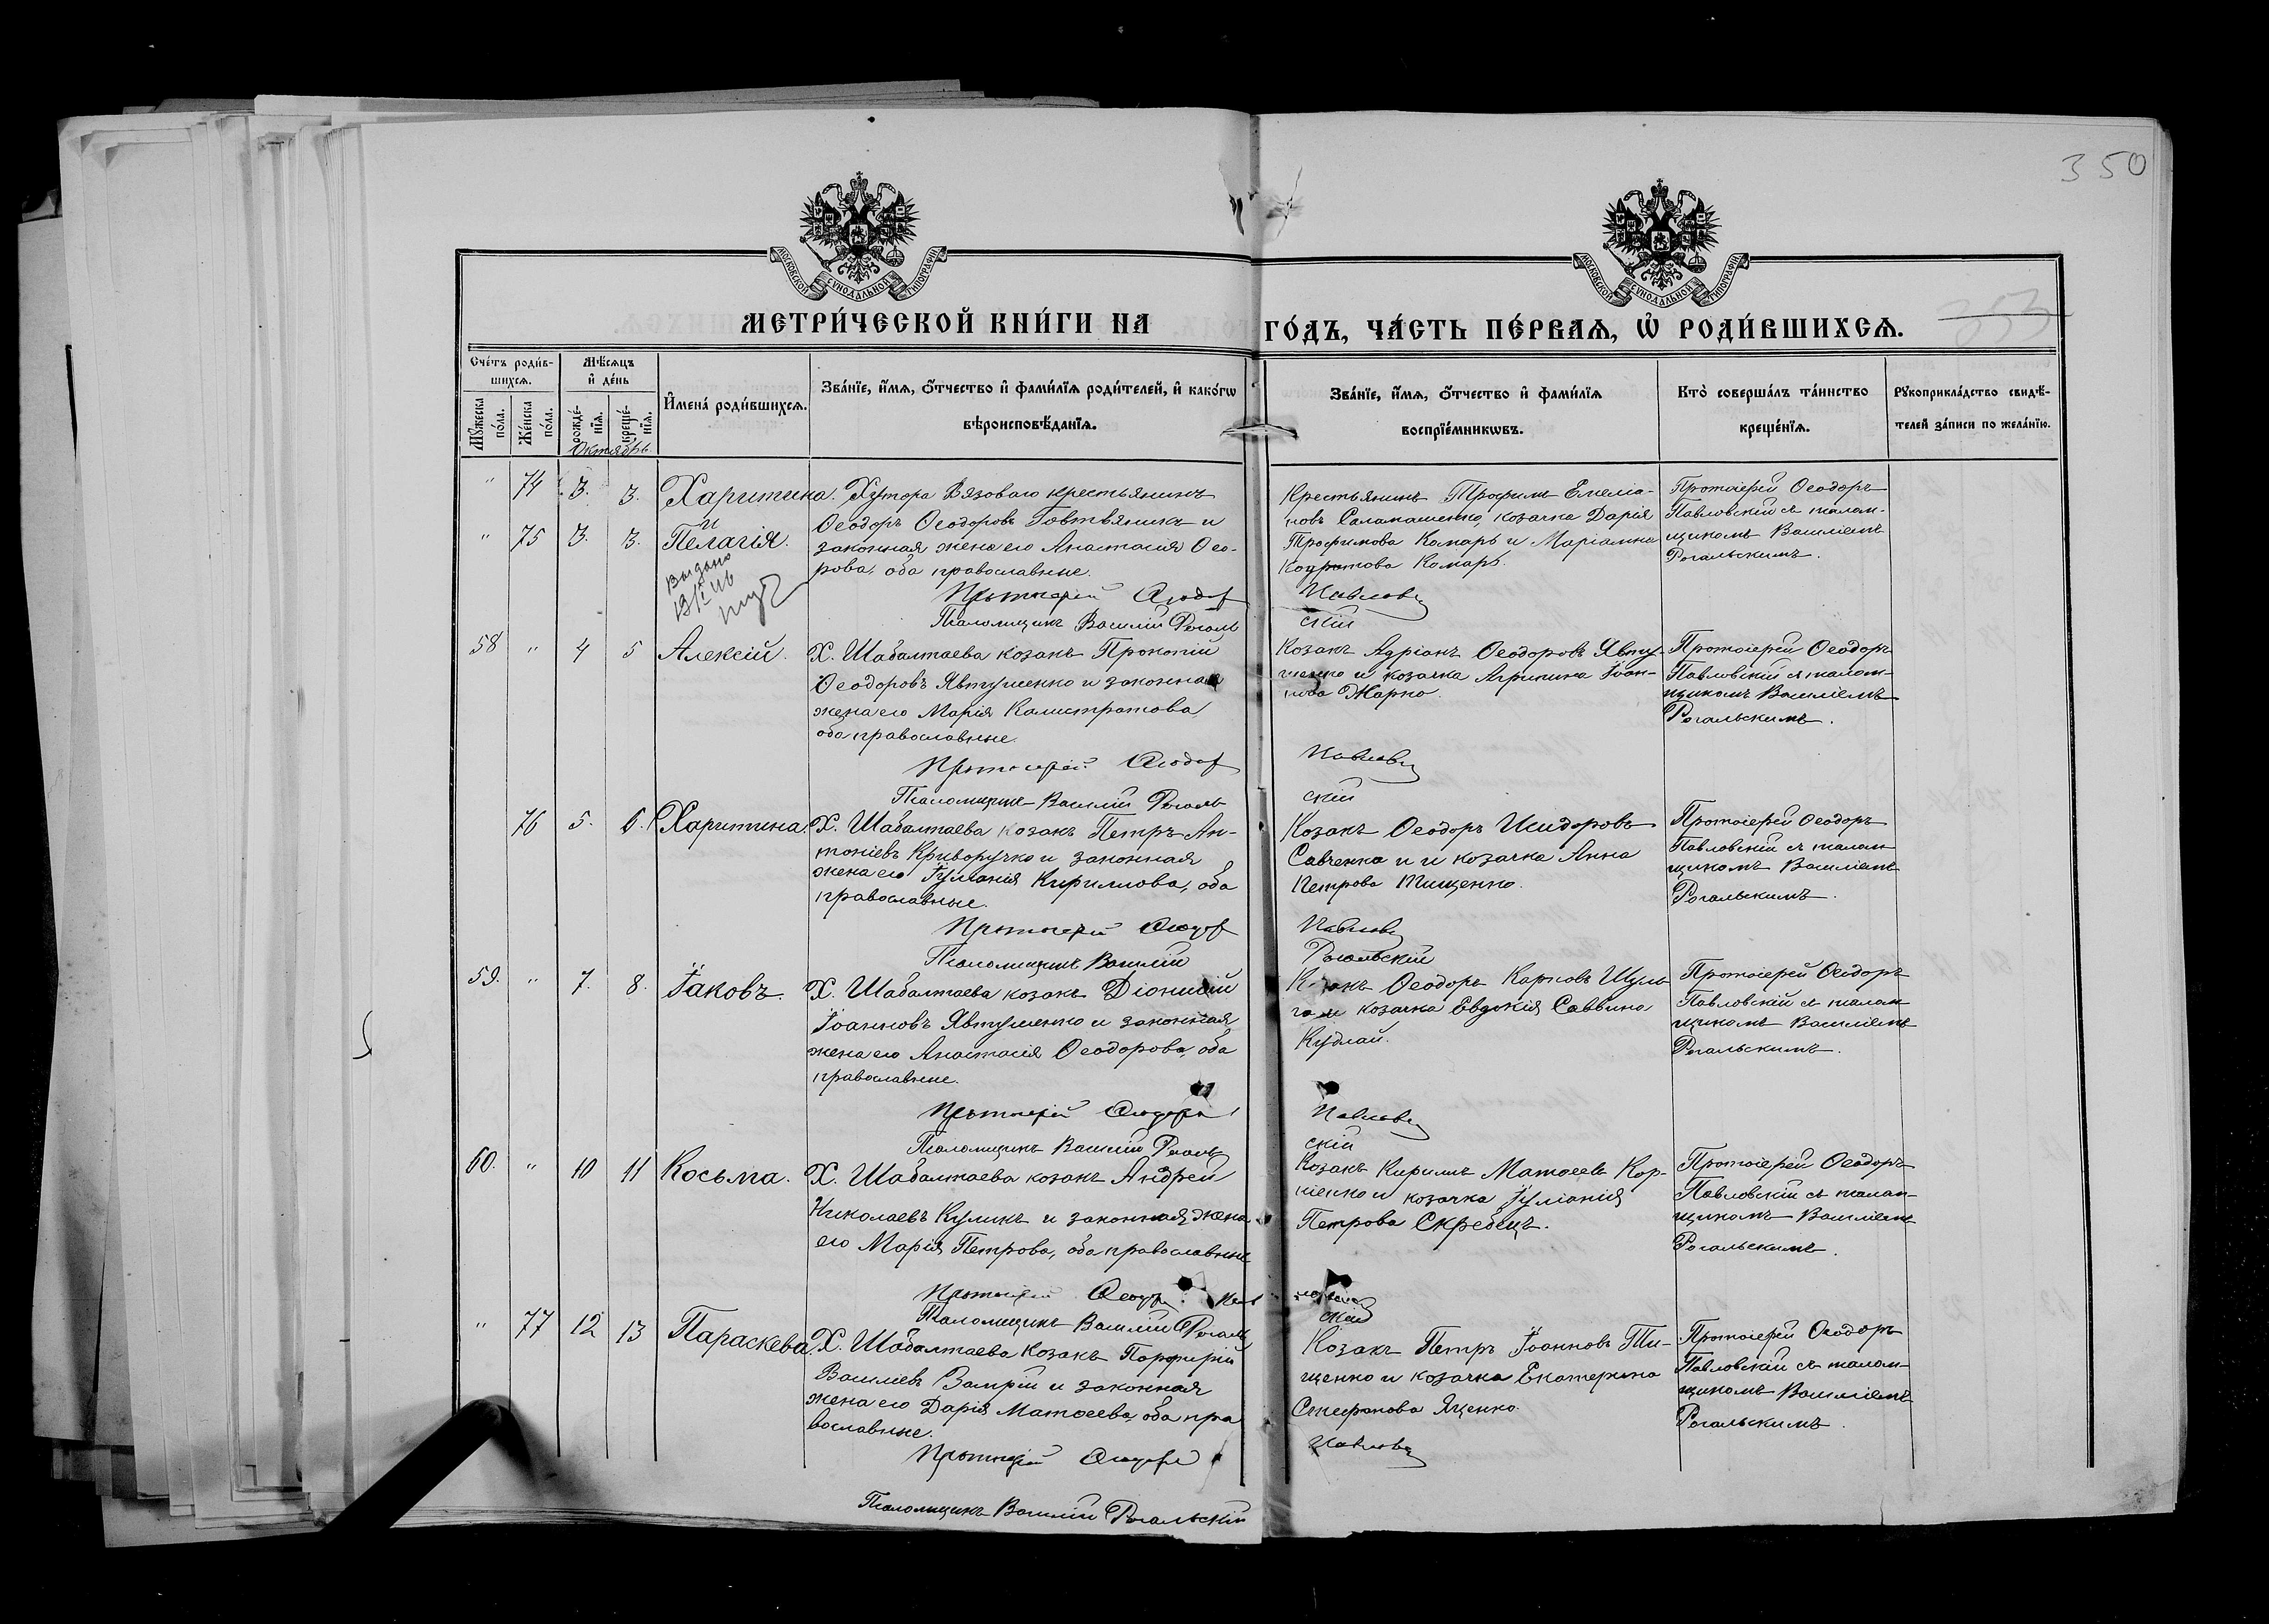 350
МОСКОВСКОЙ СУНОДАЛЬНОЙ ТИПОГРАФІИ
МОСКОВСКОЙ СУНОДАЛЬНОЙ ТИПОГРАФІИ
353
МЕТРИ́ЧЕСКОЙ КНИ́ГИ НА ГО́ДЪ, ЧА́СТЬ ПЕ́РВАѦ, Ѡ҆ РОДИ́ВШИХСѦ.
Сче́тъ роди́в-
шихсѧ.
Мѣ́сѧцъ
и҆ де́нь
Мꙋ́жеска
по́ла.
Же́нска
по́ла.
рожде́-
нїѧ.
креще́-
нїѧ.
И҆мена̀ роди́вшихсѧ.
Зва́нїе, и҆́мѧ, о҆́тчество и҆ фами́лїѧ роди́телей, и҆ како́гѡ
вѣроисповѣ́данїѧ.
Зва́нїе, и҆́мѧ, о҆́тчество и҆ фами́лїѧ
воспрїе́мникѡвъ.
Кто̀ соверша́лъ та́инство
креще́нїѧ.
Рꙋкоприкла́дство свидѣ́-
телей за́писи по жела́нїю.
Октябрь
" 74 3. 3. Харитина.
и
" 75 3. 3. Пелагія.
выдано
Хутора Вязоваго крестьянинъ
Ѳеодоръ Ѳеодоровъ Говтвяникъ и
законная жена его Анастасія Ѳео-
рова, оба православные.
Протоіерей Ѳеодор Павлов
Псаломщикъ Василій Рогаль
скій
Крестьянинъ Трофимъ Емеліа-
новъ Саламашенко, козачка Дарія
Трофимова Комаръ и Маріамна
Комаръ.
Протоіерей Ѳеодоръ
Павловскій съ псалом-
щикомъ Василіемъ
Рогальскимъ.
58 " 4 5 Алексій.
Х. Шабалтаева козакъ Прокопій
Ѳеодоровъ Явтушенко и законная
жена его Марія Калистратова,
оба православные.
Протоіерей Ѳеодор Павлов
Псаломщикъ Василій Рогаль
скій
Козакъ Адріанъ Ѳеодоровъ Явту-
шенко и козачка Агрипина Іоан-
нова Жарко.
Протоіерей Ѳеодоръ
Павловскій съ псалом-
щикомъ Василіемъ
Рогальскимъ.
76 5. 6. Харитина.
Х. Шабалтаева козакъ Петръ Ан-
тоніевъ Криворучко и законная
жена его Іуліанія Кириллова, оба
православные.
Протоіерей Ѳеодор Павлов
Псаломщикъ Василій Рогальскій
Козакъ Ѳеодоръ Исидоровъ
Савченко и и козачка Анна
Петрова Тищенко.
Протоіерей Ѳеодоръ
Павловскій съ псалом
щикомъ Василіемъ
Рогальскимъ.
59. " 7. 8. Іаковъ.
Х. Шабалтаева козакъ Діонисій
Іоанновъ Явтушенко и законная
жена его Анастасія Ѳеодорова, оба
православные.
Протоіерей Ѳеодоръ Павлов
Псаломщикъ Василій Рогаль
скій
Козакъ Ѳеодоръ Карповъ Шуль
га и козачка Евдокія Саввина
Кудлай.
Протоіерей Ѳеодоръ
Павловскій съ псалом
щикомъ Василіемъ
Рогальскимъ.
60. " 10 11 Косьма.
Х. Шабалтаева козакъ Андрей
Николаевъ Куликъ и законная жена
его Марія Петрова, оба православные
Протоіерей Ѳеодор Павлов
Псаломщикъ Василій Рогаль
скій
Козакъ Кириллъ Матѳеевъ Кор-
ніенко и козачка Іуліанія
Петрова Скребецъ.
Протоіерей Ѳеодоръ
Павловскій съ псалом-
щикомъ Василіемъ
Рогальскимъ.
" 77 12 13 Параскева.
Х. Шабалтаева козакъ Порфирій
Василіевъ Замрій и законная
жена его Дарія Матѳеева, оба пра
вославные.
Протоіерей Ѳеодоръ Павлов
Псаломщикъ Василій Рогальскій
Козакъ Петръ Іоанновъ Ти-
щенко и козачка Екатерина
Стефанова Яценко.
Протоіерей Ѳеодоръ
Павловскій съ псалом-
щикомъ Василіемъ
Рогальскимъ.